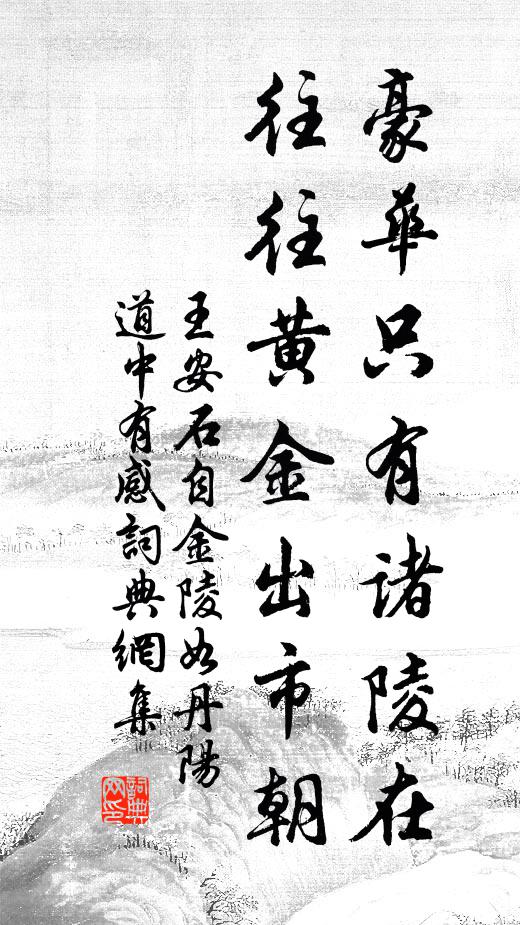 豪華只有諸陵在
往往黃金出市朝
王安石自金陵如丹陽
道中有感詞典網集
詞典网印